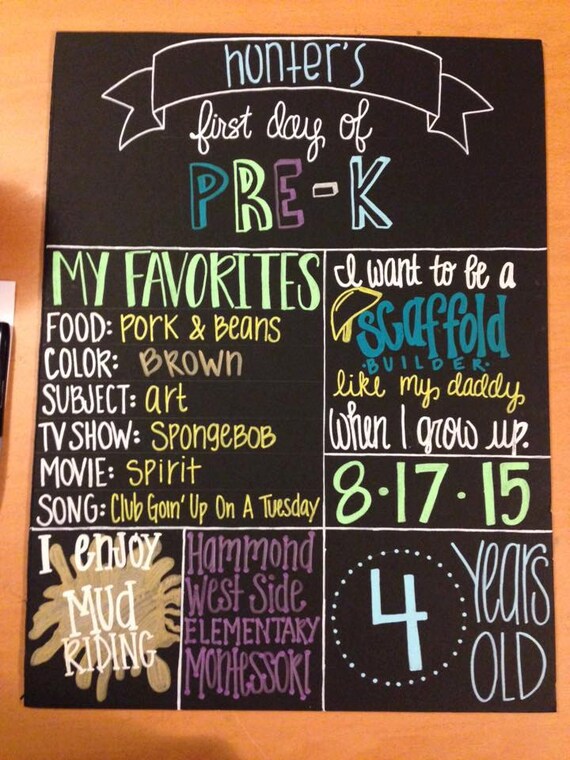 hunter's
first day of
PRE-K
MY FAVORITES
FOOD: PORK & BEANS
COLOR: BROWN
SUBJECT: art
TV SHOW: SPONGEBOB
MOVIE: SPIRIT
SONG: Club Goin' Up On A Tuesday
I want to be a
scaffold
BUILDER
like my daddy
when I grow up.
8·17·15
I ENJOY
MUD
RIDING
Hammond
West Side
ELEMENTARY
Montessori
4 YEARS
OLD